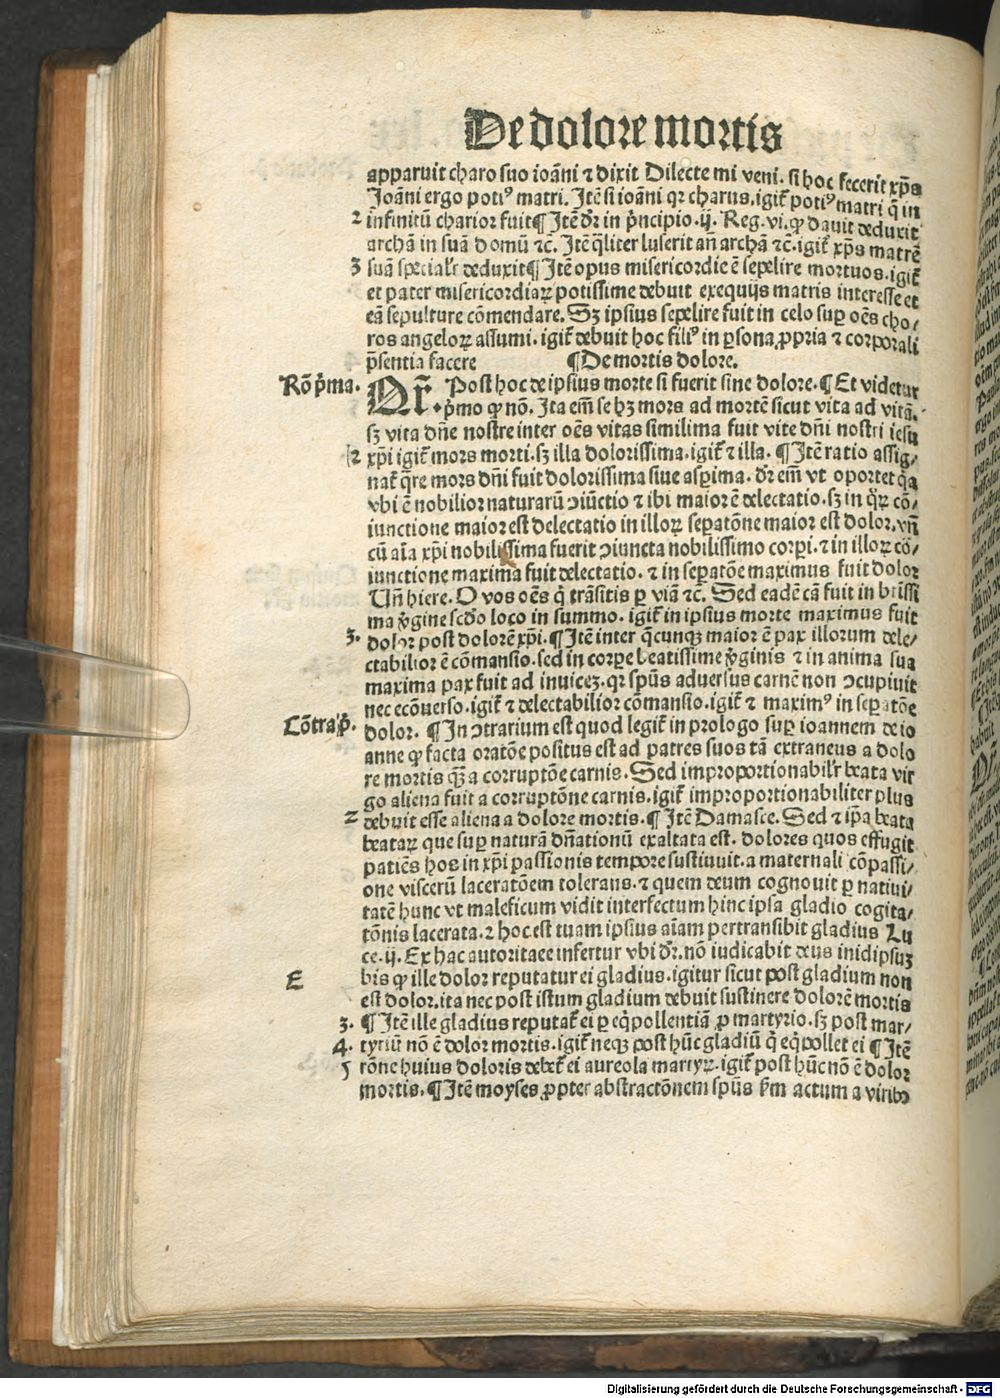 De dolore mortis
apparuit charo suo ioāni ⁊ dixit Dilecte mi veni. si hoc fecerit xp̄s
Joāni ergo potiꝰ matri. Itē si ioāni qꝛ charus. igit̄ potiꝰ matri q̄ in
2 infinitū charior fuit ¶ Itē dr̄ in p̄ncipio .ij. Reg. vi. ꝙ dauit deduxit
archā in suā domū ⁊c̄. Itē q̄liter luserit an̄ archā ⁊c̄. igit̄ xp̄s matrē
3 suā specialr̄ deduxit ¶ Itē opus misericordie ē sepelire mortuos. igit̄
et pater misericordiaꝝ potissime debuit exequijs matris interesse et
eā sepulture cōmendare. Sꝫ ipsius sepelire fuit in celo suꝑ oēs cho/
ros angeloꝝ assumi. igit̄ debuit hoc filiꝰ in ꝑsona ꝓpria ⁊ corporali
p̄sentia facere ¶ De mortis dolore.
Rō p̄ma. Qr̄. Post hoc de ipsius morte si fuerit sine dolore. ¶ Et videtur
p̄mo ꝙ nō. Ita em̄ se hꝫ mors ad mortē sicut vita ad vitā.
sꝫ vita dn̄e nostre inter oēs vitas simillima fuit vite dn̄i nostri iesu
2 xp̄i igit̄ mors morti. sꝫ illa dolorissima. igit̄ ⁊ illa. ¶ Itē ratio assig/
nat̄ q̄re mors dn̄i fuit dolorissima siue asꝑima. dr̄ em̄ vt oportet q̄a
vbi ē nobilior naturarū ꝯiūctio ⁊ ibi maior ē delectatio. sꝫ in q̄ꝝ cō/
iunctione maior est delectatio in illoꝝ seꝑatōne maior est dolor. vn̄
cū aīa xp̄i nobilissima fuerit ꝯiuncta nobilissimo corꝑi. ⁊ in illoꝝ cō/
iunctione maxima fuit delectatio. ⁊ in seꝑatōe maximus fuit dolor
Un̄ hiere. O vos oēs q̄ trāsitis ꝑ viā ⁊c̄. Sed eadē cā fuit in btīssi
ma v̄gine scd̄o loco in summo. igit̄ in ipsius morte maximus fuit
3. dolor post dolorē xp̄i. ¶ Itē inter q̄cunqꝫ maior ē pax illorum dele/
ctabilior ē cōmansio. sed in corꝑe beatissime v̄ginis ⁊ in anima sua
maxima pax fuit ad inuiceꝫ. qꝛ spūs aduersus carnē non ꝯcupiuit
nec ecōuerso. igit̄ ⁊ delectabilior cōmansio. igit̄ ⁊ maximꝰ in seꝑatōe
Cōtra p̄. dolor. ¶ In ꝯtrarium est quod legit̄ in prologo suꝑ ioannem de io
anne ꝙ facta oratōe positus est ad patres suos tā extraneus a dolo
re mortis qꝫ̄ a corruptōe carnis. Sed improportionabilr̄ beata vir
go aliena fuit a corruptōne carnis. igit̄ improportionabiliter plus
2 debuit esse aliena a dolore mortis. ¶ Itē Damasce. Sed ⁊ ip̄a beata
beataꝝ que suꝑ naturā dn̄ationū exaltata est. dolores quos effugit
patiēs hos in xp̄i passionis tempore sustinuit. a maternali cōpassi/
one viscerū laceratōem tolerans. ⁊ quem deum cognouit ꝑ natiui/
tatē hunc vt maleficum vidit interfectum hinc ipsa gladio cogita/
tōnis lacerata. ⁊ hoc est tuam ipsius aīam pertransibit gladius Lu
ce. ij. Ex hac autoritaee infertur vbi dr̄. nō iudicabit deus in idipsuꝫ
E bis ꝙ ille dolor reputatur ei gladius. igitur sicut post gladium non
est dolor. ita nec post istum gladium debuit sustinere dolorē mortis
3. ¶ Itē ille gladius reputat̄ ei ꝑ eq̄pollentiā ꝓ martyrio. sꝫ post mar/
4. tyriū nō ē dolor mortis. igit̄ neqꝫ post hūc gladiū q̄ eq̄pollet ei ¶ Itē
5 rōne huius doloris debet̄ ei aureola martyꝝ. igit̄ post hūc nō ē dolor
mortis. ¶ Itē moyses ꝓpter abstractōnem spūs ẜm actum a viribꝰ
Digitalisierung gefördert durch die Deutsche Forschungsgemeinschaft - DFG